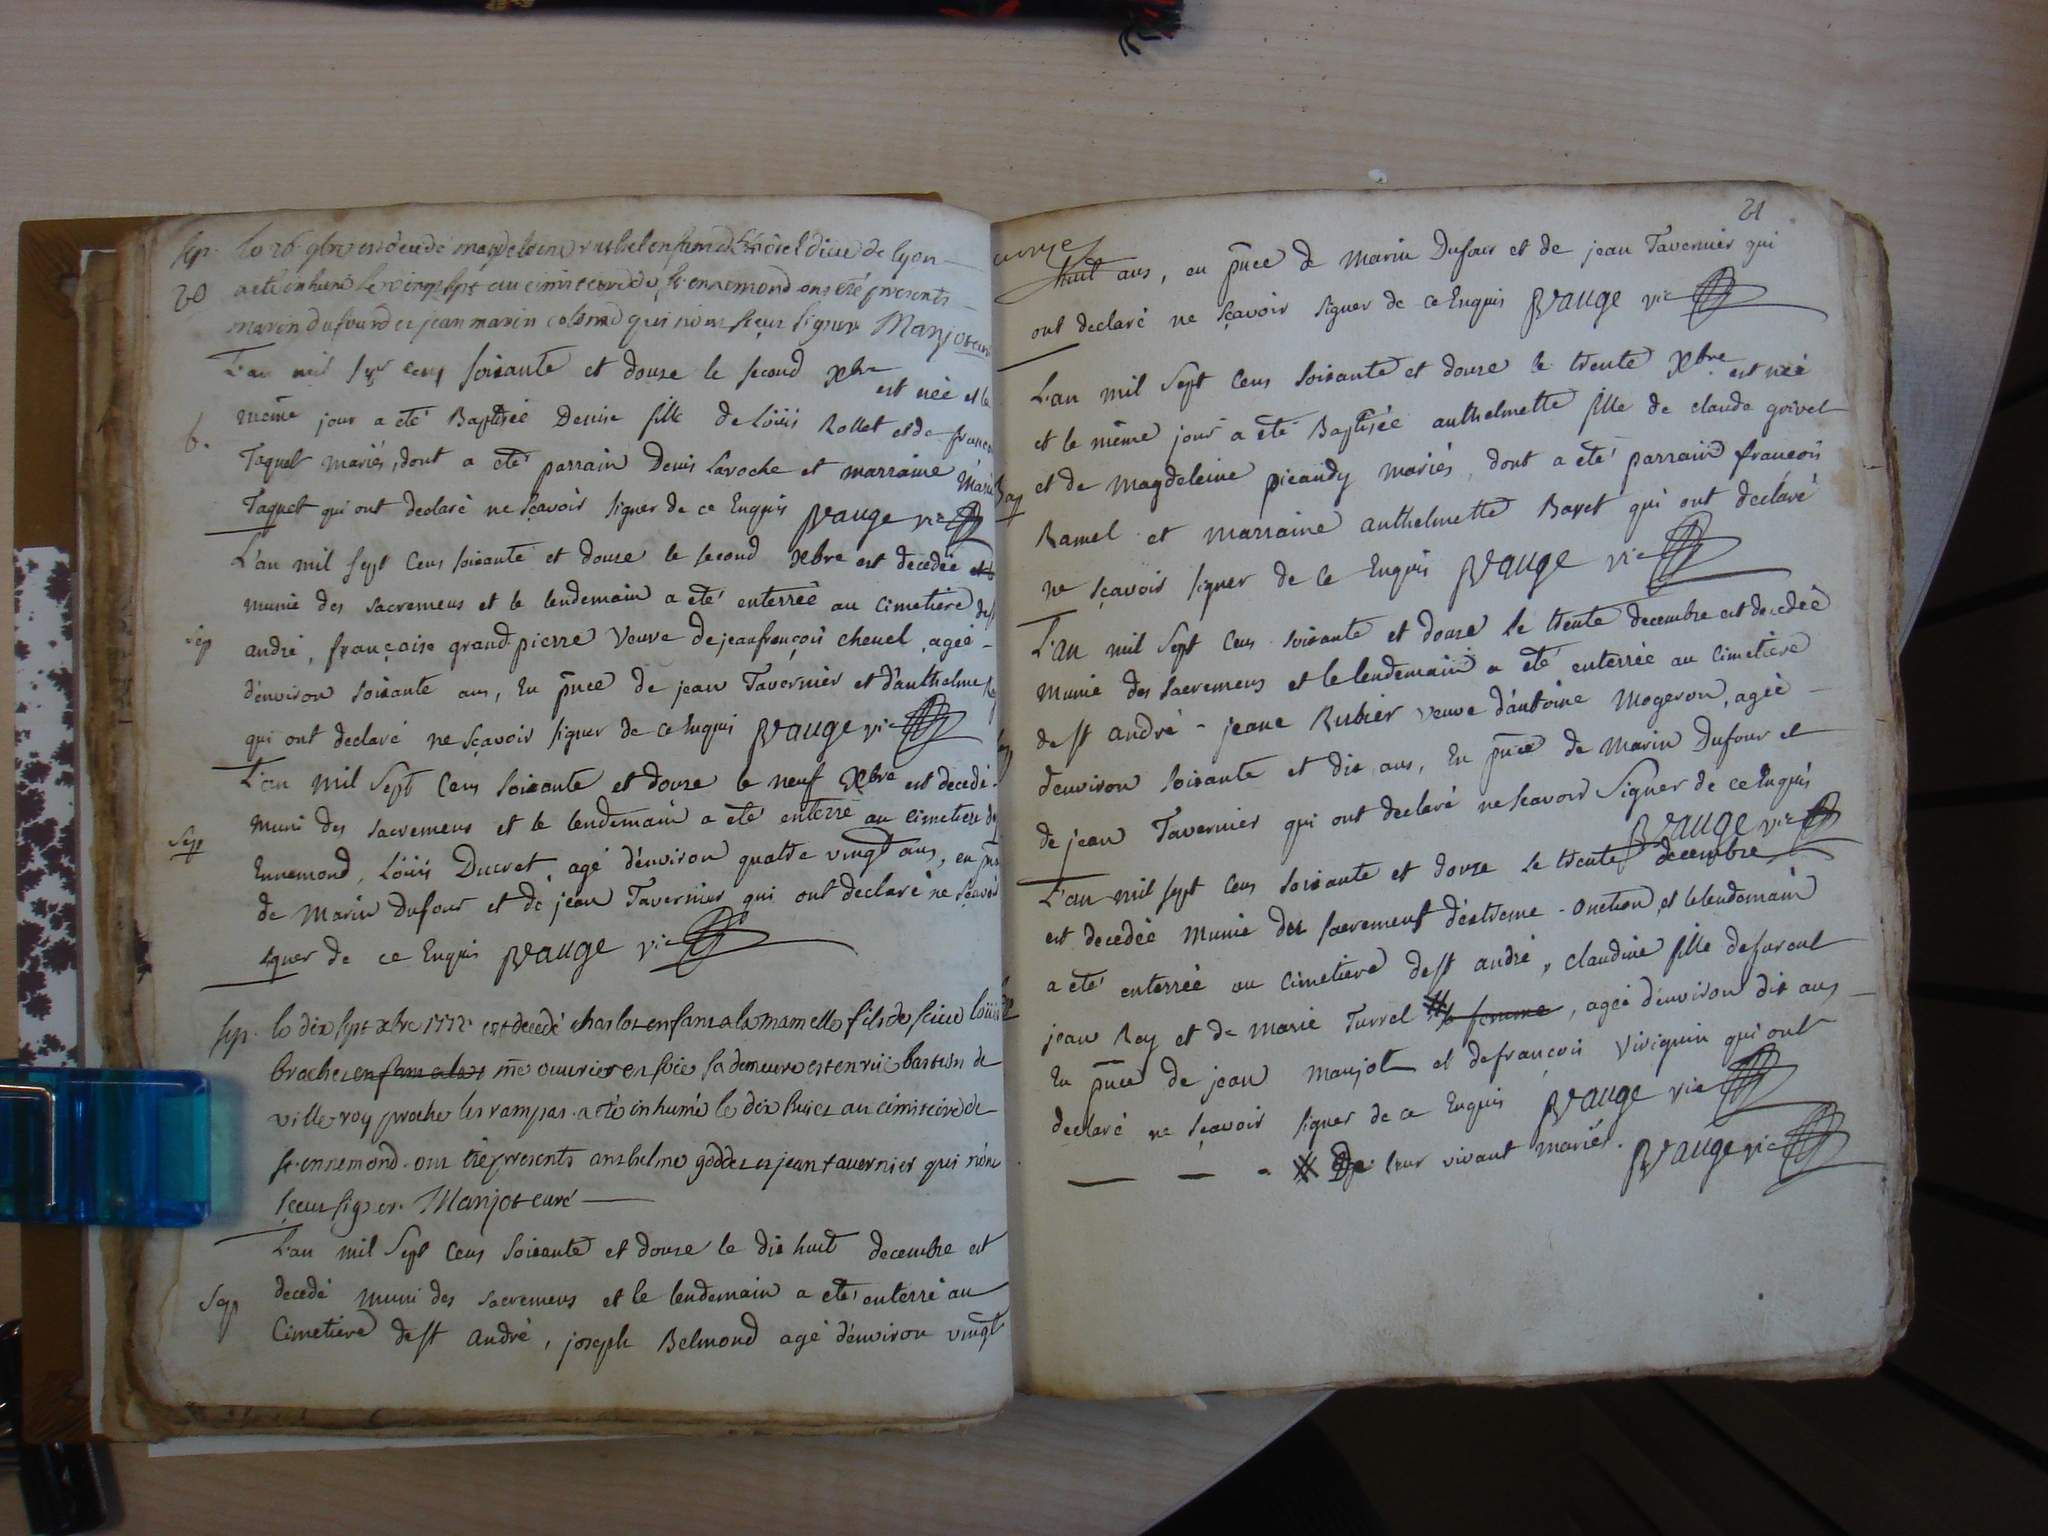 Sep. le 26 9bre est décédé magdeleine enfant de l'hôtel dieu de lyon
20 a eté inhumé le vingt sept au cimitere de st. ennemond ont été presents
marin dufour et jean marin qui n'ont sceu signer Manjot curé
L'an mil sept cens soixante et douze le second Xbre est née et le
b. même jour a eté Baptisée Denise fille de Loüis Rollet et de
Taquet mariés, dont a eté parrain Denis Laroche et marraine Marie
Taquet qui ont declaré ne sçavoir signer de ce Enquis Vauge vic
L'an mil sept cens soixante et douze le second Xbre est decedée
munie des sacremens et le lendemain a eté enterrée au cimetiere de st
Sep andré, françoise grand pierre veuve de jean françois chenel, ageé
d'environ soixante ans, En pñce de jean Tavernier et d'anthelme
qui ont declaré ne sçavoir signer de ce Enquis Vauge vic
L'an mil Sept Cens soixante et douze le neuf Xbre est decedé
Sep muni des sacremens et le lendemain a eté enterré au cimetiere de
Ennemond, Loüis Ducret, agé d'environ quatre vingt ans, en pñce
de Marin Dufour et de jean Tavernier qui ont declaré ne sçavoir
signer de ce Enquis Vauge vic
Sep. le dix sept xbre 1772 est decedé charlot enfant a la mamelle fils de sieur loüis
brachet enfant a la mre ouvrier en soie sa demeure est en rüe bas
ville roy proche les rampas a eté inhumé le dix huict au cimitiere de
st. ennemond. ont été presents anthelme goddet et jean tavernier qui n'ont
sceu signer. Manjot curé
L'an mil Sept Cens soixante et douze le dix huit decembre est
Sep decedé muni des sacremens et le lendemain a eté enterré au
Cimetiere de st andré, joseph Belmond agé d'environ vingt
21
huit ans, en pñce de Marin Dufour et de jean Tavernier qui
ont declaré ne sçavoir signer de ce Enquis Vauge vic
L'an mil Sept Cens soixante et douze le trente Xbre est née
et le même jour a eté Baptisée anthelmette fille de claude grivet
Bap et de Magdeleine picandy mariés, dont a eté parrain françois
Ramel et marraine anthelmette Bavet qui ont declaré
ne sçavoir signer de ce Enquis Vauge vic
L'an mil Sept Cens soixante et douze le trente decembre est decedée
Munie des sacremens et le lendemain a eté enterrée au Cimetiere
de st andré - jeane Rubier veuve d'antoine Mogeron, ageé
d'environ soixante et dix ans, En pñce de Marin Dufour et
de jean Tavernier qui ont declaré ne scavoir Signer de ce Enquis
Vauge vic
L'an mil sept cens soixante et douze le trente decembre
est decedée Munie des sacrement d'extreme-onction, et le lendemain
a eté enterrée au Cimetiere de st andré, claudine fille de furent
jean Rey et de Marie Turrel # sa femme, ageé d'environ dix ans
En pñce de jean manjot et de françois Viviquin qui ont
declaré ne sçavoir signer de ce Enquis Vauge vic
# De leur vivant mariés. Vauge vic